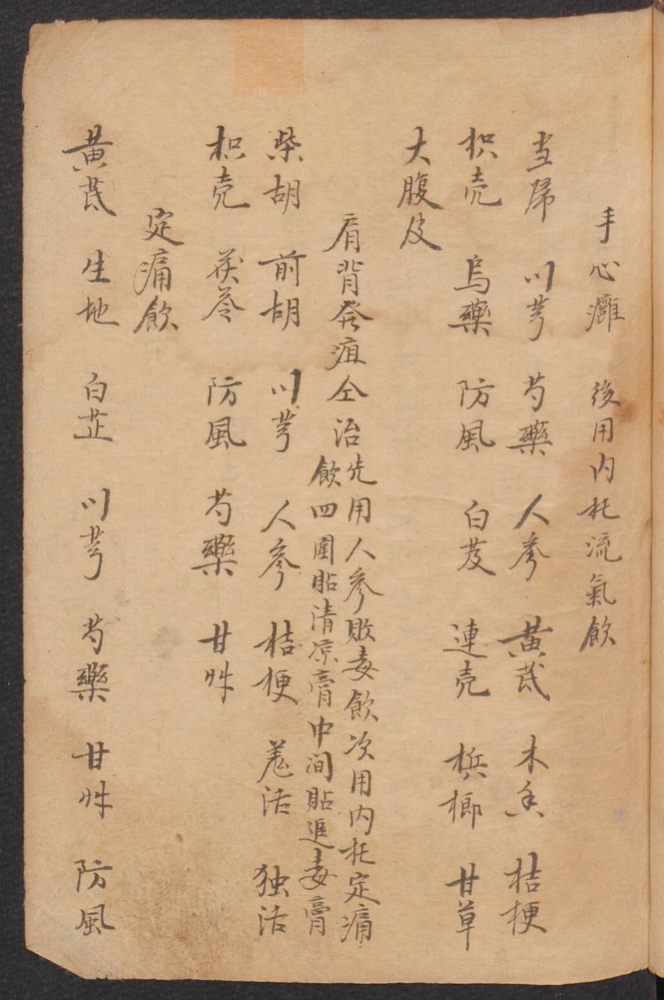 手心癰 後用内托流氣飲
当归 川芎 芍藥 人參 黃芪 木香 桔梗
枳壳 烏藥 防風 白芨 連壳 梹榔 甘草
大腹皮
肩背發疽仝治先用人參敗毒飲次用内托定痛
飲四圍貼清凉膏中间貼追毒膏
柴胡 前胡 川芎 人參 桔梗 羗活 独活
枳壳 茯苓 防風 芍藥 甘艸
定痛飲
黃芪 生地 白芷 川芎 芍藥 甘艸 防風